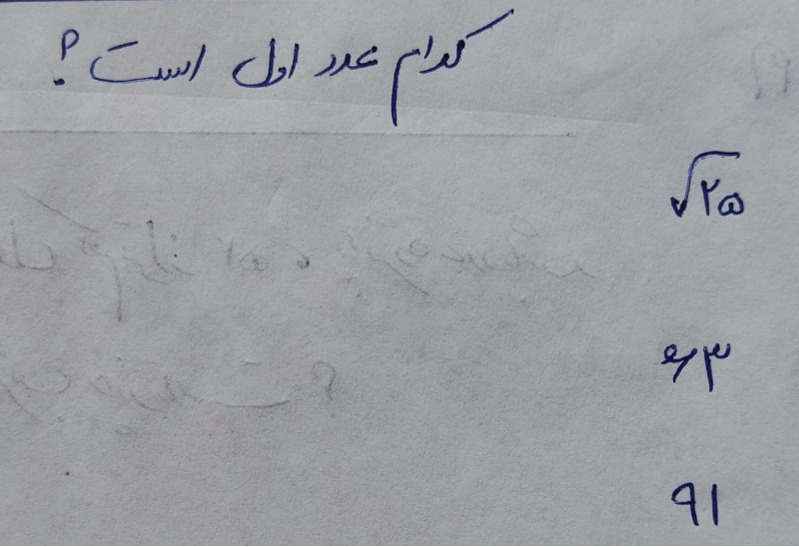 کدام عدد اول است؟
√۲۵
۶۳
۹۱